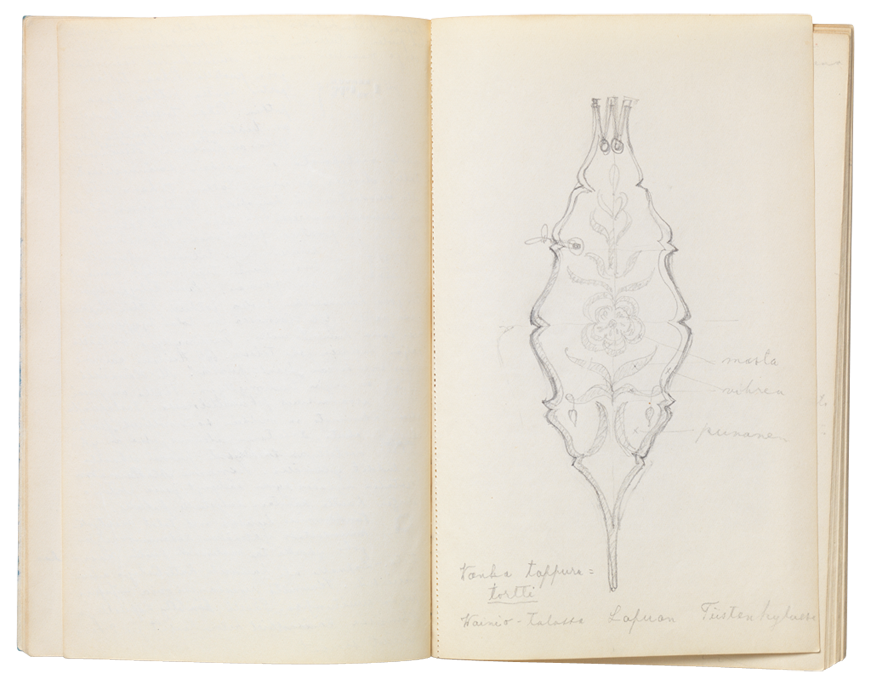 musta
vihreä
punanen
Vanha tappura=
tortti
Wainio-talossa Lapuan Tiistenkylässä